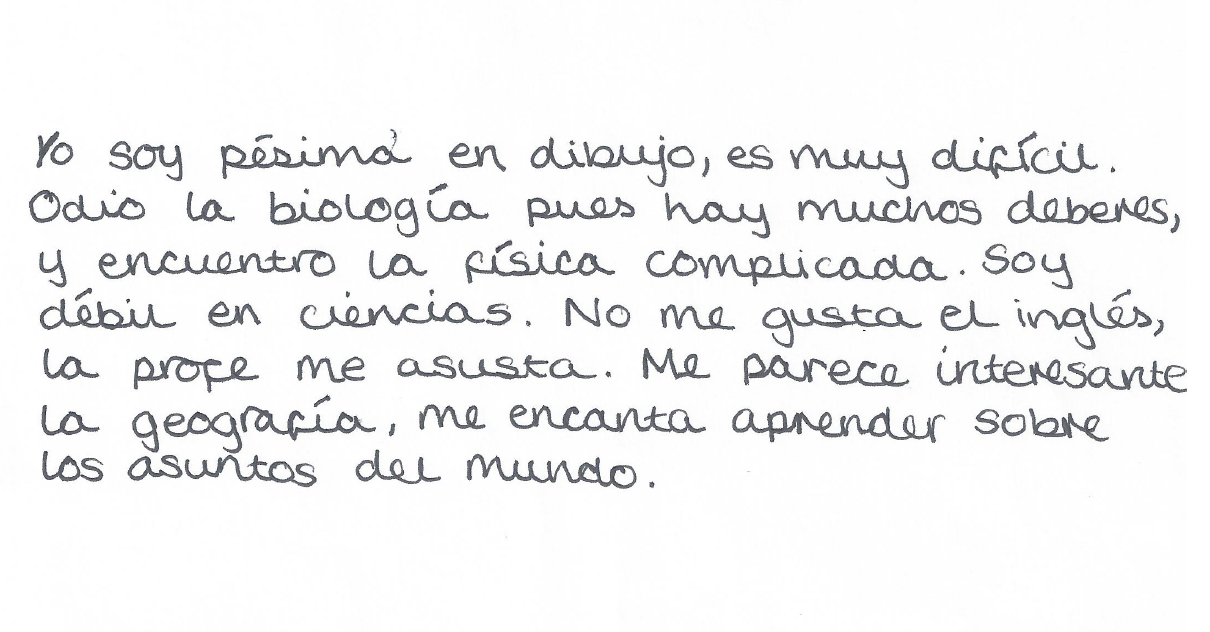 Yo soy pésima en dibujo, es muy difícil.
Odio la biología pues hay muchos deberes,
y encuentro la física complicada. Soy
débil en ciencias. No me gusta el inglés,
la profe me asusta. Me parece interesante
la geografía, me encanta aprender sobre
los asuntos del mundo.